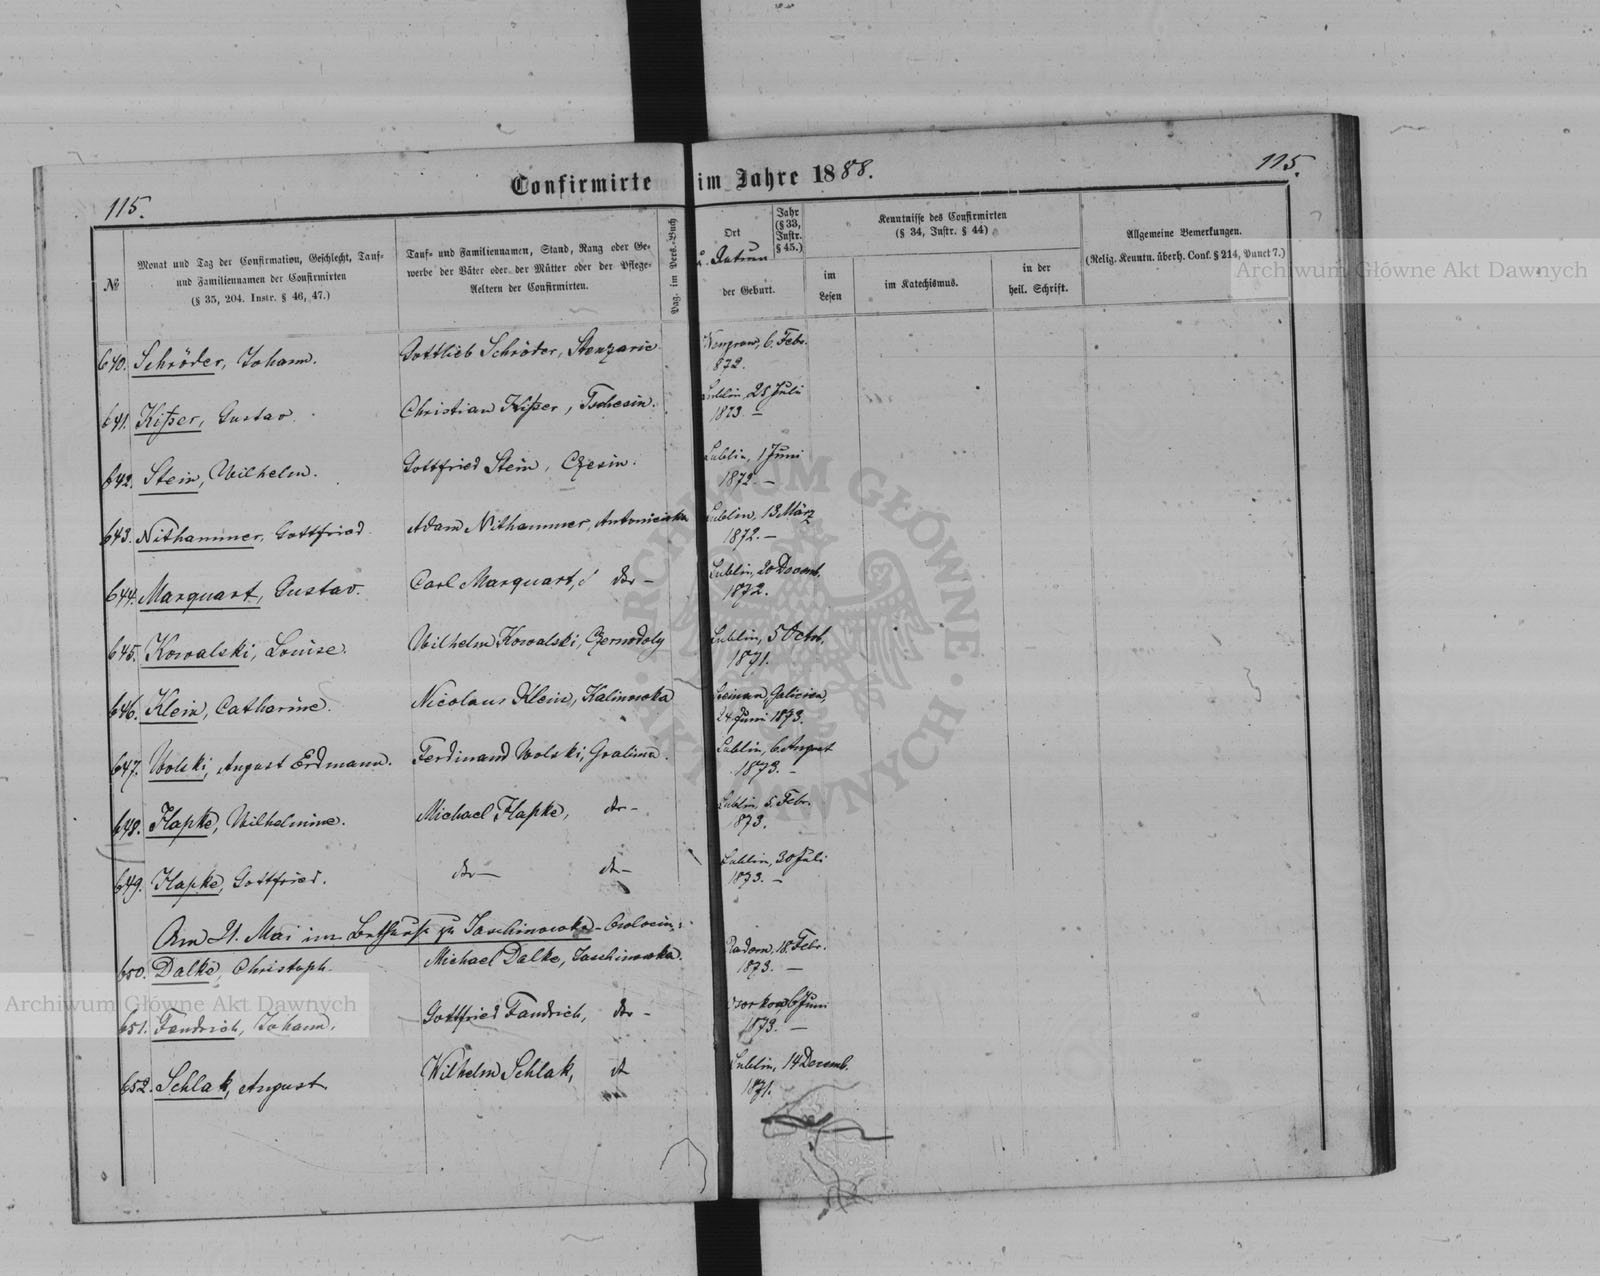 Confirmirte im Jahre 1888.
115.
115.
№
Monat und Tag der Confirmation, Geschlecht, Tauf-
und Familiennamen der Confirmirten
(§ 35, 204. Instr. § 46, 47.)
Tauf- und Familiennamen, Stand, Rang oder Ge-
werbe der Väter oder der Mütter oder der Pflege-
Aeltern der Confirmirten.
Pag. im Pers.-Buch
Ort
u. Datum
der Geburt.
Jahr
(§ 33,
Instr.
§ 45.)
Kenntnisse des Confirmirten
(§ 34, Instr. § 44)
im
Lesen
im Katechismus.
in der
heil. Schrift.
Allgemeine Bemerkungen.
(Relig. Kenntn. überh. Conf. § 214, Punct 7.)
Archiwum Główne Akt Dawnych
640. Schröder, Johann. Gottlieb Schröder, 6. Febr.
1872.
641. Kißer, Gustav. Christian Kißer, Lublin, 28 Juli
1873. —
642. Stein, Wilhelm. Gottfried Stein, Czesin. Lublin, 1 Juni
1872. —
643. Nithammer, Gottfried Adam Nithammer, Antoniewka Lublin, 13 März
1872. —
644. Marquart, Gustav. Carl Marquart, dto — Lublin, 20 Decemb.
1872.
645. Kowalski, Louise. Wilhelm Kowalski, Lublin, 5 Octob.
1871.
646. Klein, Catharine. Nicolaus Klein, Kalinowka Galicien,
24 Juni 1873.
647. Wolski, August Erdmann. Ferdinand Wolski, Lublin, 6 August
1873. —
648. Hapke, Wilhelmine. Michael Hapke, dto — Lublin, 5. Febr.
1873.
649. Hapke, Gottfried. dto — dto — Lublin, 30 Juli
1873. —
Am 21. Mai im Bethause zu Jaschinowka
650. Dalke, Christoph. Michael Dalke, Jaschinowka. Radom, 18 Febr.
1873. —
Archiwum Główne Akt Dawnych
651. Fandrich, Johann. Gottfried Fandrich, dto — 6 Juni
1873. —
652. Schlak, August. Wilhelm Schlak, dt Lublin, 14 Decemb.
1871.
ARCHIWUM GŁÓWNE
AKT DAWNYCH